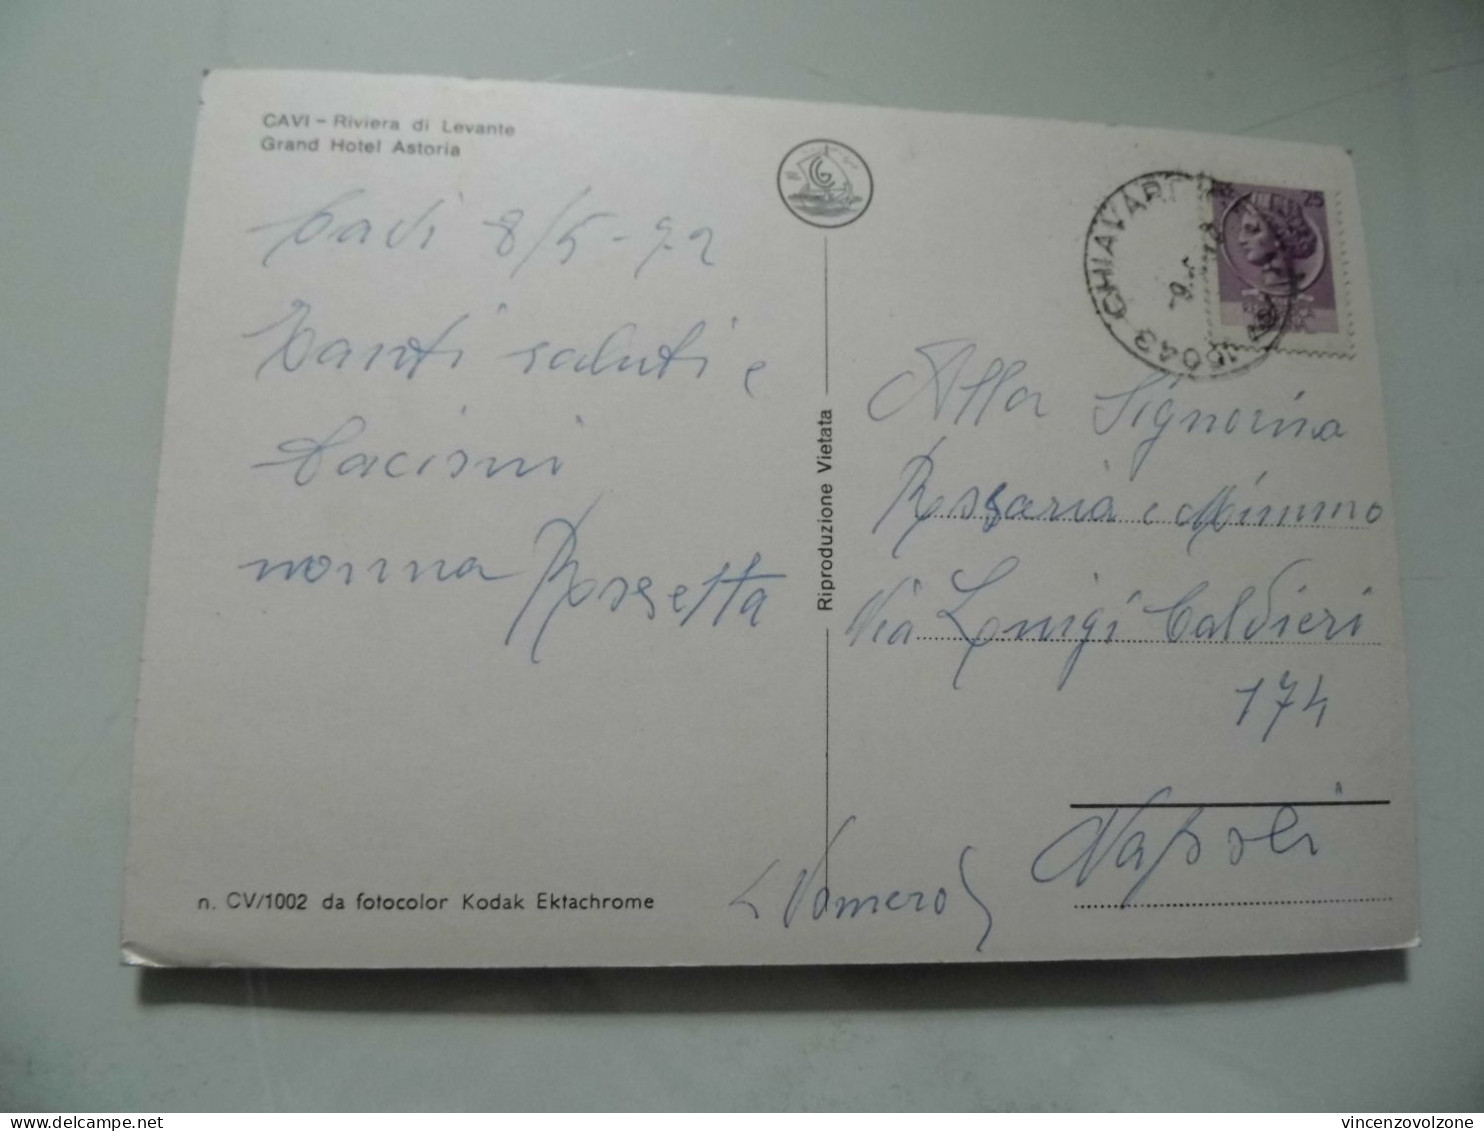 CAVI – Riviera di Levante
Grand Hotel Astoria
Cavi 8/5-72
Tanti saluti e
bacioni
nonna Rossetta
n. CV/1002 da fotocolor Kodak Ektachrome
Riproduzione Vietata
CG
25
16043 CHIAVARI
Alla Signorina
Rossaria e Mimmo
Via Luigi Caldieri
174
Napoli
(Vomero)
vincenzovolzone